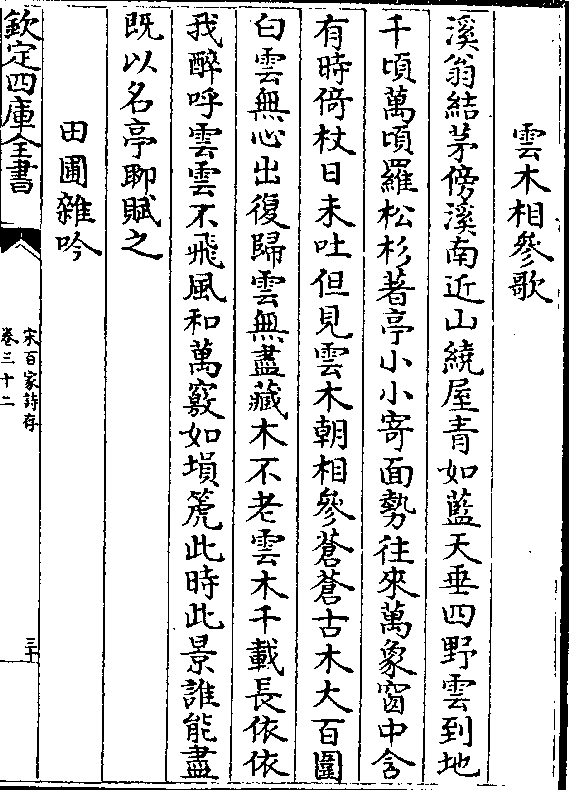 雲木相參歌
溪翁結茅傍溪南近山繞屋青如藍天垂四野雲到地
千頃萬頃羅松杉著亭小小寄面勢往來萬象窗中含
有時倚杖日未吐但見雲木朝相參蒼蒼古木大百圍
白雲無心出復歸雲無盡藏木不老雲木千載長依依
我醉呼雲雲不飛風和萬竅如塤篪此時此景誰能盡
既以名亭聊賦之
田圃雜吟
欽定四庫全書
宋百家詩存
卷三十二
三十